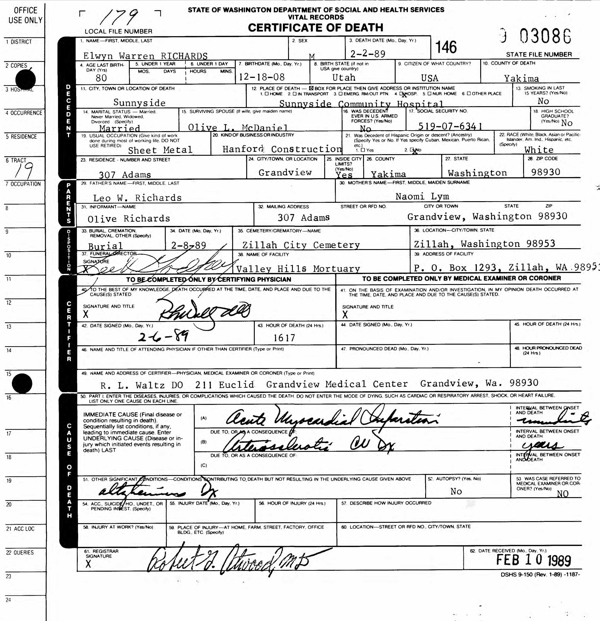 OFFICE USE ONLY
179
LOCAL FILE NUMBER
STATE OF WASHINGTON DEPARTMENT OF SOCIAL AND HEALTH SERVICES
VITAL RECORDS
CERTIFICATE OF DEATH
146
03086
STATE FILE NUMBER
1 DISTRICT
1. NAME—FIRST, MIDDLE, LAST
Elwyn Warren RICHARDS
2. SEX
M
3. DEATH DATE (Mo., Day, Yr.)
2-2-89
2 COPIES
4. AGE LAST BIRTHDAY (Yrs)
80
5. UNDER 1 YEAR
MOS. DAYS
6. UNDER 1 DAY
HOURS MINS.
7. BIRTHDATE (Mo., Day, Yr.)
12-18-08
8. BIRTH STATE (If not in USA give country)
Utah
9. CITIZEN OF WHAT COUNTRY?
USA
10. COUNTY OF DEATH
Yakima
3 HOSPITAL
DECEDENT
11. CITY, TOWN OR LOCATION OF DEATH
Sunnyside
12. PLACE OF DEATH— BOX FOR PLACE THEN GIVE ADDRESS OR INSTITUTION NAME
1 HOME 2 IN TRANSPORT 3 EMERG. RM/OUT PTN 4 HOSP. 5 NUR HOME 6 OTHER PLACE
Sunnyside Community Hospital
13. SMOKING IN LAST 15 YEARS? (Yes/No)
No
4 OCCURRENCE
14. MARITAL STATUS—Married, Never Married, Widowed, Divorced (Specify)
Married
15. SURVIVING SPOUSE (If wife, give maiden name)
Olive L. McDaniel
16. WAS DECEDENT EVER IN U.S. ARMED FORCES? (Yes/No)
No
17. SOCIAL SECURITY NO.
519-07-6341
18. HIGH SCHOOL GRADUATE? (Yes/No)
No
5 RESIDENCE
19. USUAL OCCUPATION (Give kind of work done during most of working life. DO NOT USE RETIRED)
Sheet Metal
20. KIND OF BUSINESS/OR INDUSTRY
Hanford Construction
21. Was Decedent of Hispanic Origin or descent? (Ancestry) (Specify Yes or No. If Yes specify Cuban, Mexican, Puerto Rican, etc.)
1. Yes 2. No
22. RACE (White, Black, Asian or Pacific Islander, Am. Ind, Hispanic, etc. (Specify)
White
6 TRACT
19
23. RESIDENCE - NUMBER AND STREET
307 Adams
24. CITY/TOWN, OR LOCATION
Grandview
25. INSIDE CITY LIMITS?
Yes
26. COUNTY
Yakima
27. STATE
Washington
28. ZIP CODE
98930
7 OCCUPATION
PARENTS
29. FATHER'S NAME—FIRST, MIDDLE, LAST
Leo W. Richards
30. MOTHER'S NAME—FIRST, MIDDLE, MAIDEN SURNAME
Naomi Lym
8
31. INFORMANT—NAME
Olive Richards
32. MAILING ADDRESS STREET OR RFD NO. CITY OR TOWN STATE ZIP
307 Adams Grandview, Washington 98930
9
DISPOSITION
33. BURIAL, CREMATION, REMOVAL, OTHER (Specify)
Burial
34. DATE (Mo. Day, Yr.)
2-8-89
35. CEMETERY/CREMATORY—NAME
Zillah City Cemetery
36. LOCATION—CITY/TOWN, STATE
Zillah, Washington 98953
10
37. FUNERAL DIRECTOR
38. NAME OF FACILITY
Valley Hills Mortuary
39. ADDRESS OF FACILITY
P. O. Box 1293, Zillah, WA.98953
11
TO BE COMPLETED ONLY BY CERTIFYING PHYSICIAN
TO BE COMPLETED ONLY BY MEDICAL EXAMINER OR CORONER
CERTIFIER
40. TO THE BEST OF MY KNOWLEDGE DEATH OCCURRED AT THE TIME, DATE AND PLACE AND DUE TO THE CAUSE(S) STATED
SIGNATURE AND TITLE
X
41. ON THE BASIS OF EXAMINATION AND/OR INVESTIGATION, IN MY OPINION DEATH OCCURRED AT THE TIME, DATE, AND PLACE AND DUE TO THE CAUSE(S) STATED.
SIGNATURE AND TITLE
X
12
13
42. DATE SIGNED (Mo., Day, Yr.)
2-6-89
43. HOUR OF DEATH (24 Hrs)
1617
44. DATE SIGNED (Mo., Day, Yr.)
45. HOUR OF DEATH (24 Hrs)
14
46. NAME AND TITLE OF ATTENDING PHYSICIAN IF OTHER THAN CERTIFIER (Type or Print)
47. PRONOUNCED DEAD (Mo., Day, Yr.)
48. HOUR PRONOUNCED DEAD (24 Hrs)
15
49. NAME AND ADDRESS OF CERTIFIER—PHYSICIAN, MEDICAL EXAMINER OR CORONER (Type or Print)
R. L. Waltz DO 211 Euclid Grandview Medical Center Grandview, Wa. 98930
16
50. PART I. ENTER THE DISEASES, INJURIES, OR COMPLICATIONS WHICH CAUSED THE DEATH. DO NOT ENTER THE MODE OF DYING, SUCH AS CARDIAC OR RESPIRATORY ARREST, SHOCK, OR HEART FAILURE. LIST ONLY ONE CAUSE ON EACH LINE.
CAUSE OF DEATH
IMMEDIATE CAUSE (Final disease or condition resulting in death). Sequentially list conditions, if any, leading to immediate cause. Enter UNDERLYING CAUSE (Disease or injury which initiated events resulting in death) LAST
(A) Acute Myocardial Infarction
INTERVAL BETWEEN ONSET AND DEATH
minutes
17
DUE TO, OR AS A CONSEQUENCE OF:
(B) Arteriosclerotic CV Dx
INTERVAL BETWEEN ONSET AND DEATH
years
18
DUE TO, OR AS A CONSEQUENCE OF:
(C)
INTERVAL BETWEEN ONSET AND DEATH
19
51. OTHER SIGNIFICANT CONDITIONS—CONDITIONS CONTRIBUTING TO DEATH BUT NOT RESULTING IN THE UNDERLYING CAUSE GIVEN ABOVE
Dx
52. AUTOPSY? (Yes, No)
No
53. WAS CASE REFERRED TO MEDICAL EXAMINER OR CORONER? (Yes/No)
NO
20
54. ACC., SUICIDE, HO., UNDET., OR PENDING INVEST. (Specify)
55. INJURY DATE (Mo., Day, Yr.)
56. HOUR OF INJURY (24 Hrs)
57. DESCRIBE HOW INJURY OCCURRED
21 ACC LOC
58. INJURY AT WORK? (Yes/No)
59. PLACE OF INJURY—AT HOME, FARM, STREET, FACTORY, OFFICE BLDG., ETC. (Specify)
60. LOCATION—STREET OR RFD NO., CITY/TOWN, STATE
22 QUERIES
61. REGISTRAR
SIGNATURE
X Robert G. Atwood, MD
62. DATE RECEIVED (Mo., Day, Yr.)
FEB 10 1989
23
DSHS 9-150 (Rev. 1-89) -1187-
24